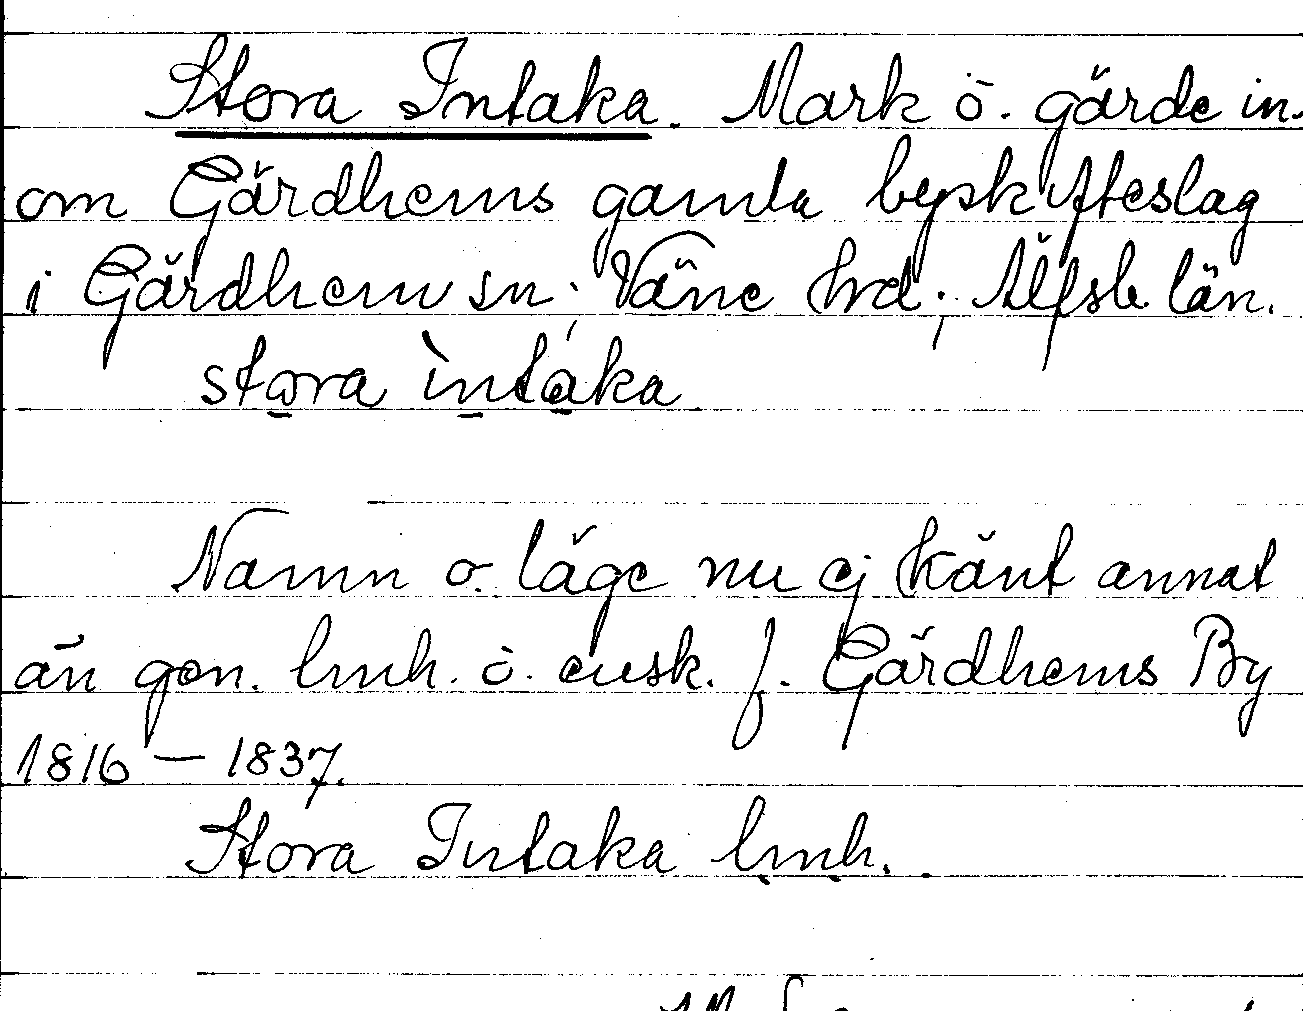 Stora Intaka. Mark o. gärde in-
om Gärdhems gamla byskifteslag
i Gärdhem sn; Väne hrd; Älfsb. län.
stora ìntáka
Namn o. läge nu ej känt annat
än gen. lmh. o. ensk. f. Gärdhems By
1816 – 1837.
Stora Intaka lmh.